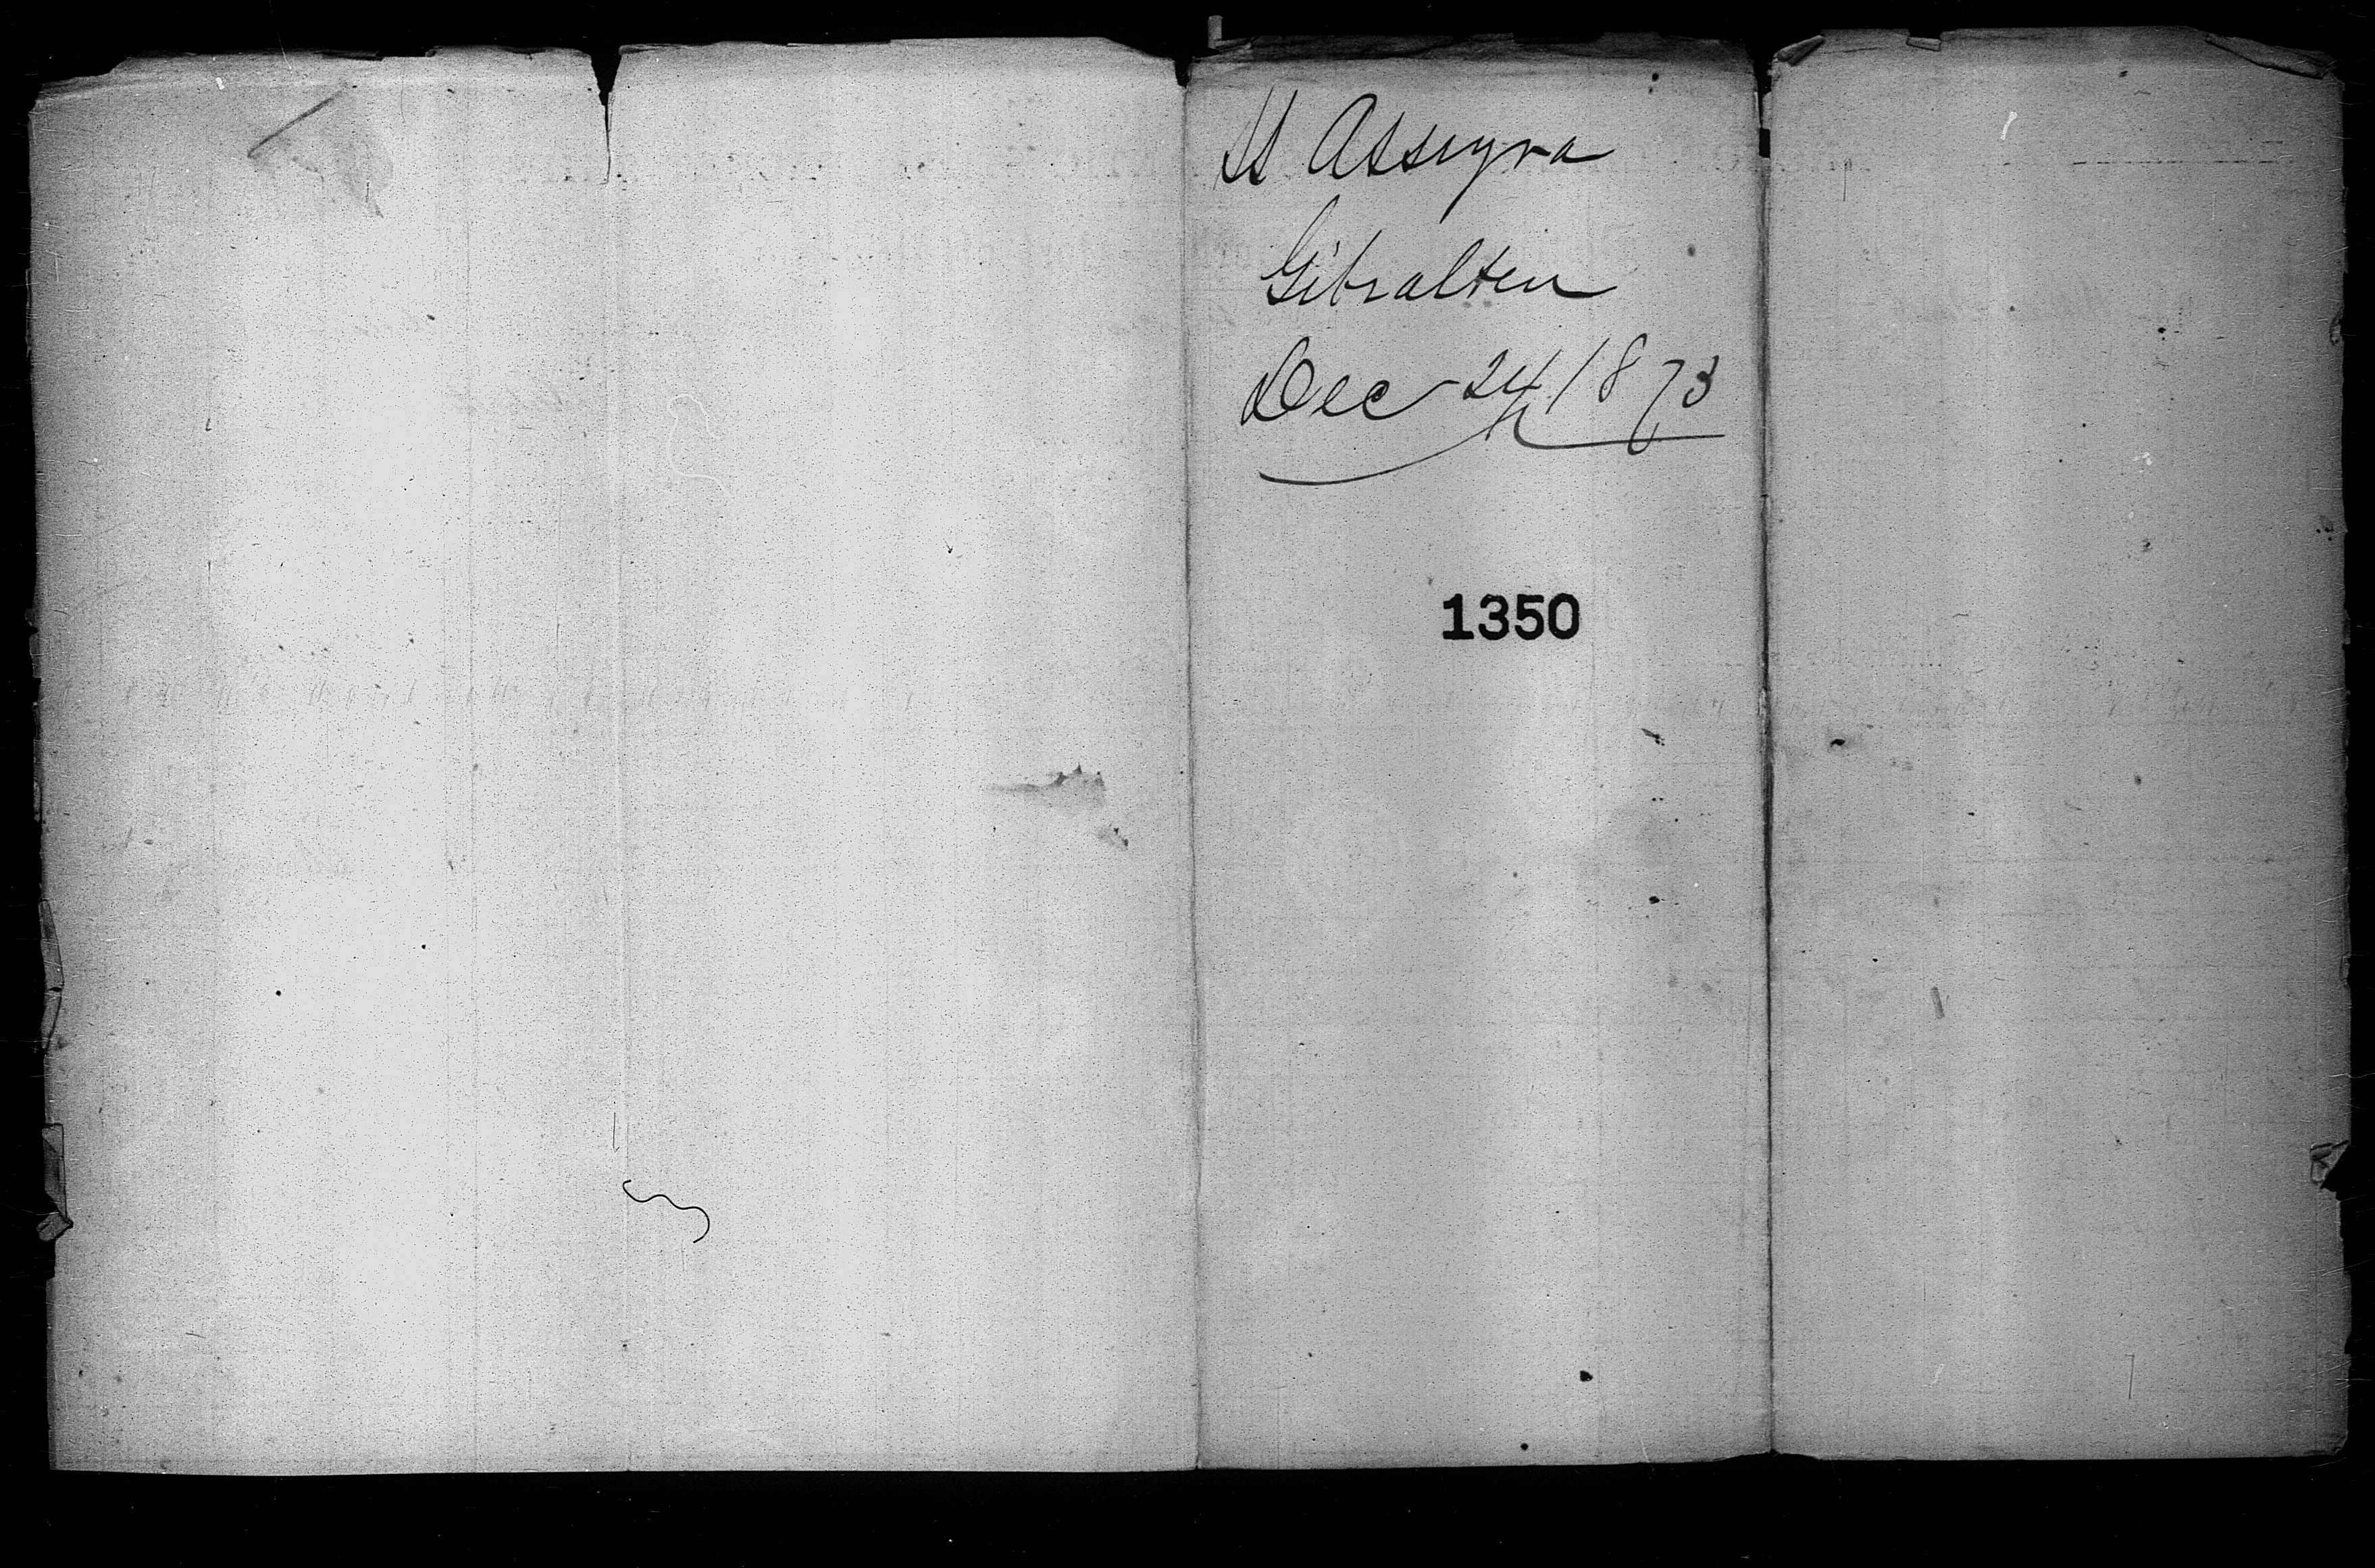 SS Assyria
Gibraltar
Dec 24 1873
1350